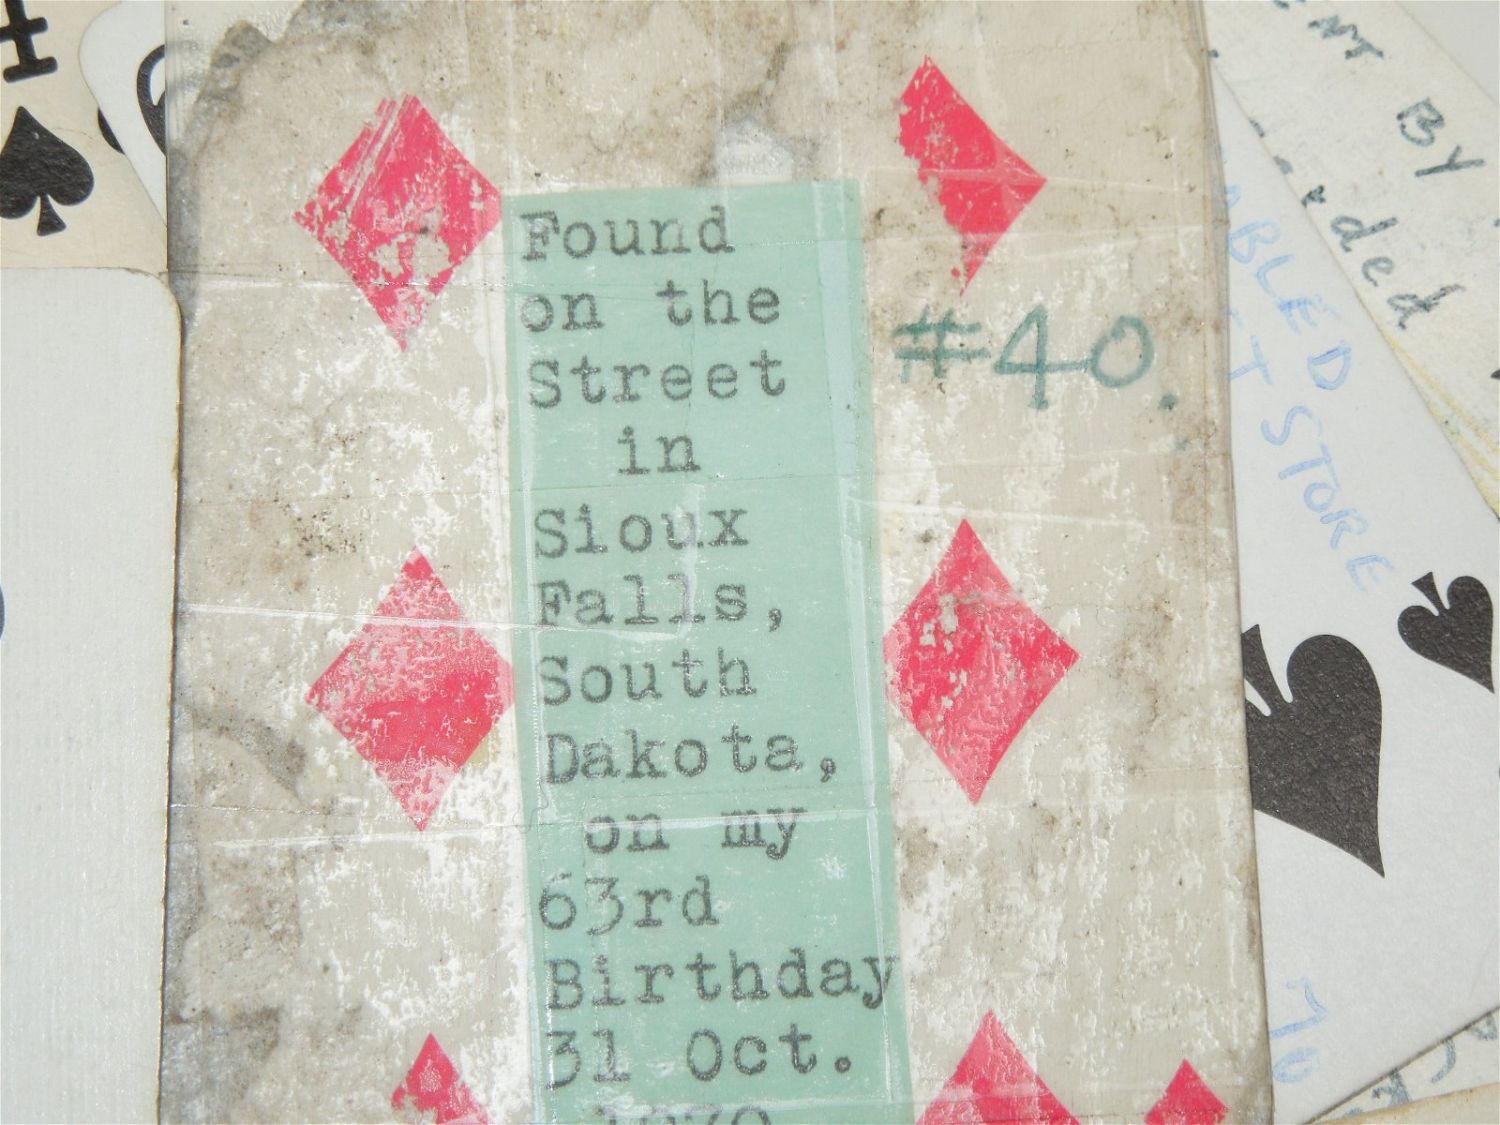 Found
on the
Street
in
Sioux
Falls,
South
Dakota,
on my
63rd
Birthday
31 Oct.
#40.
BY
STORE
6